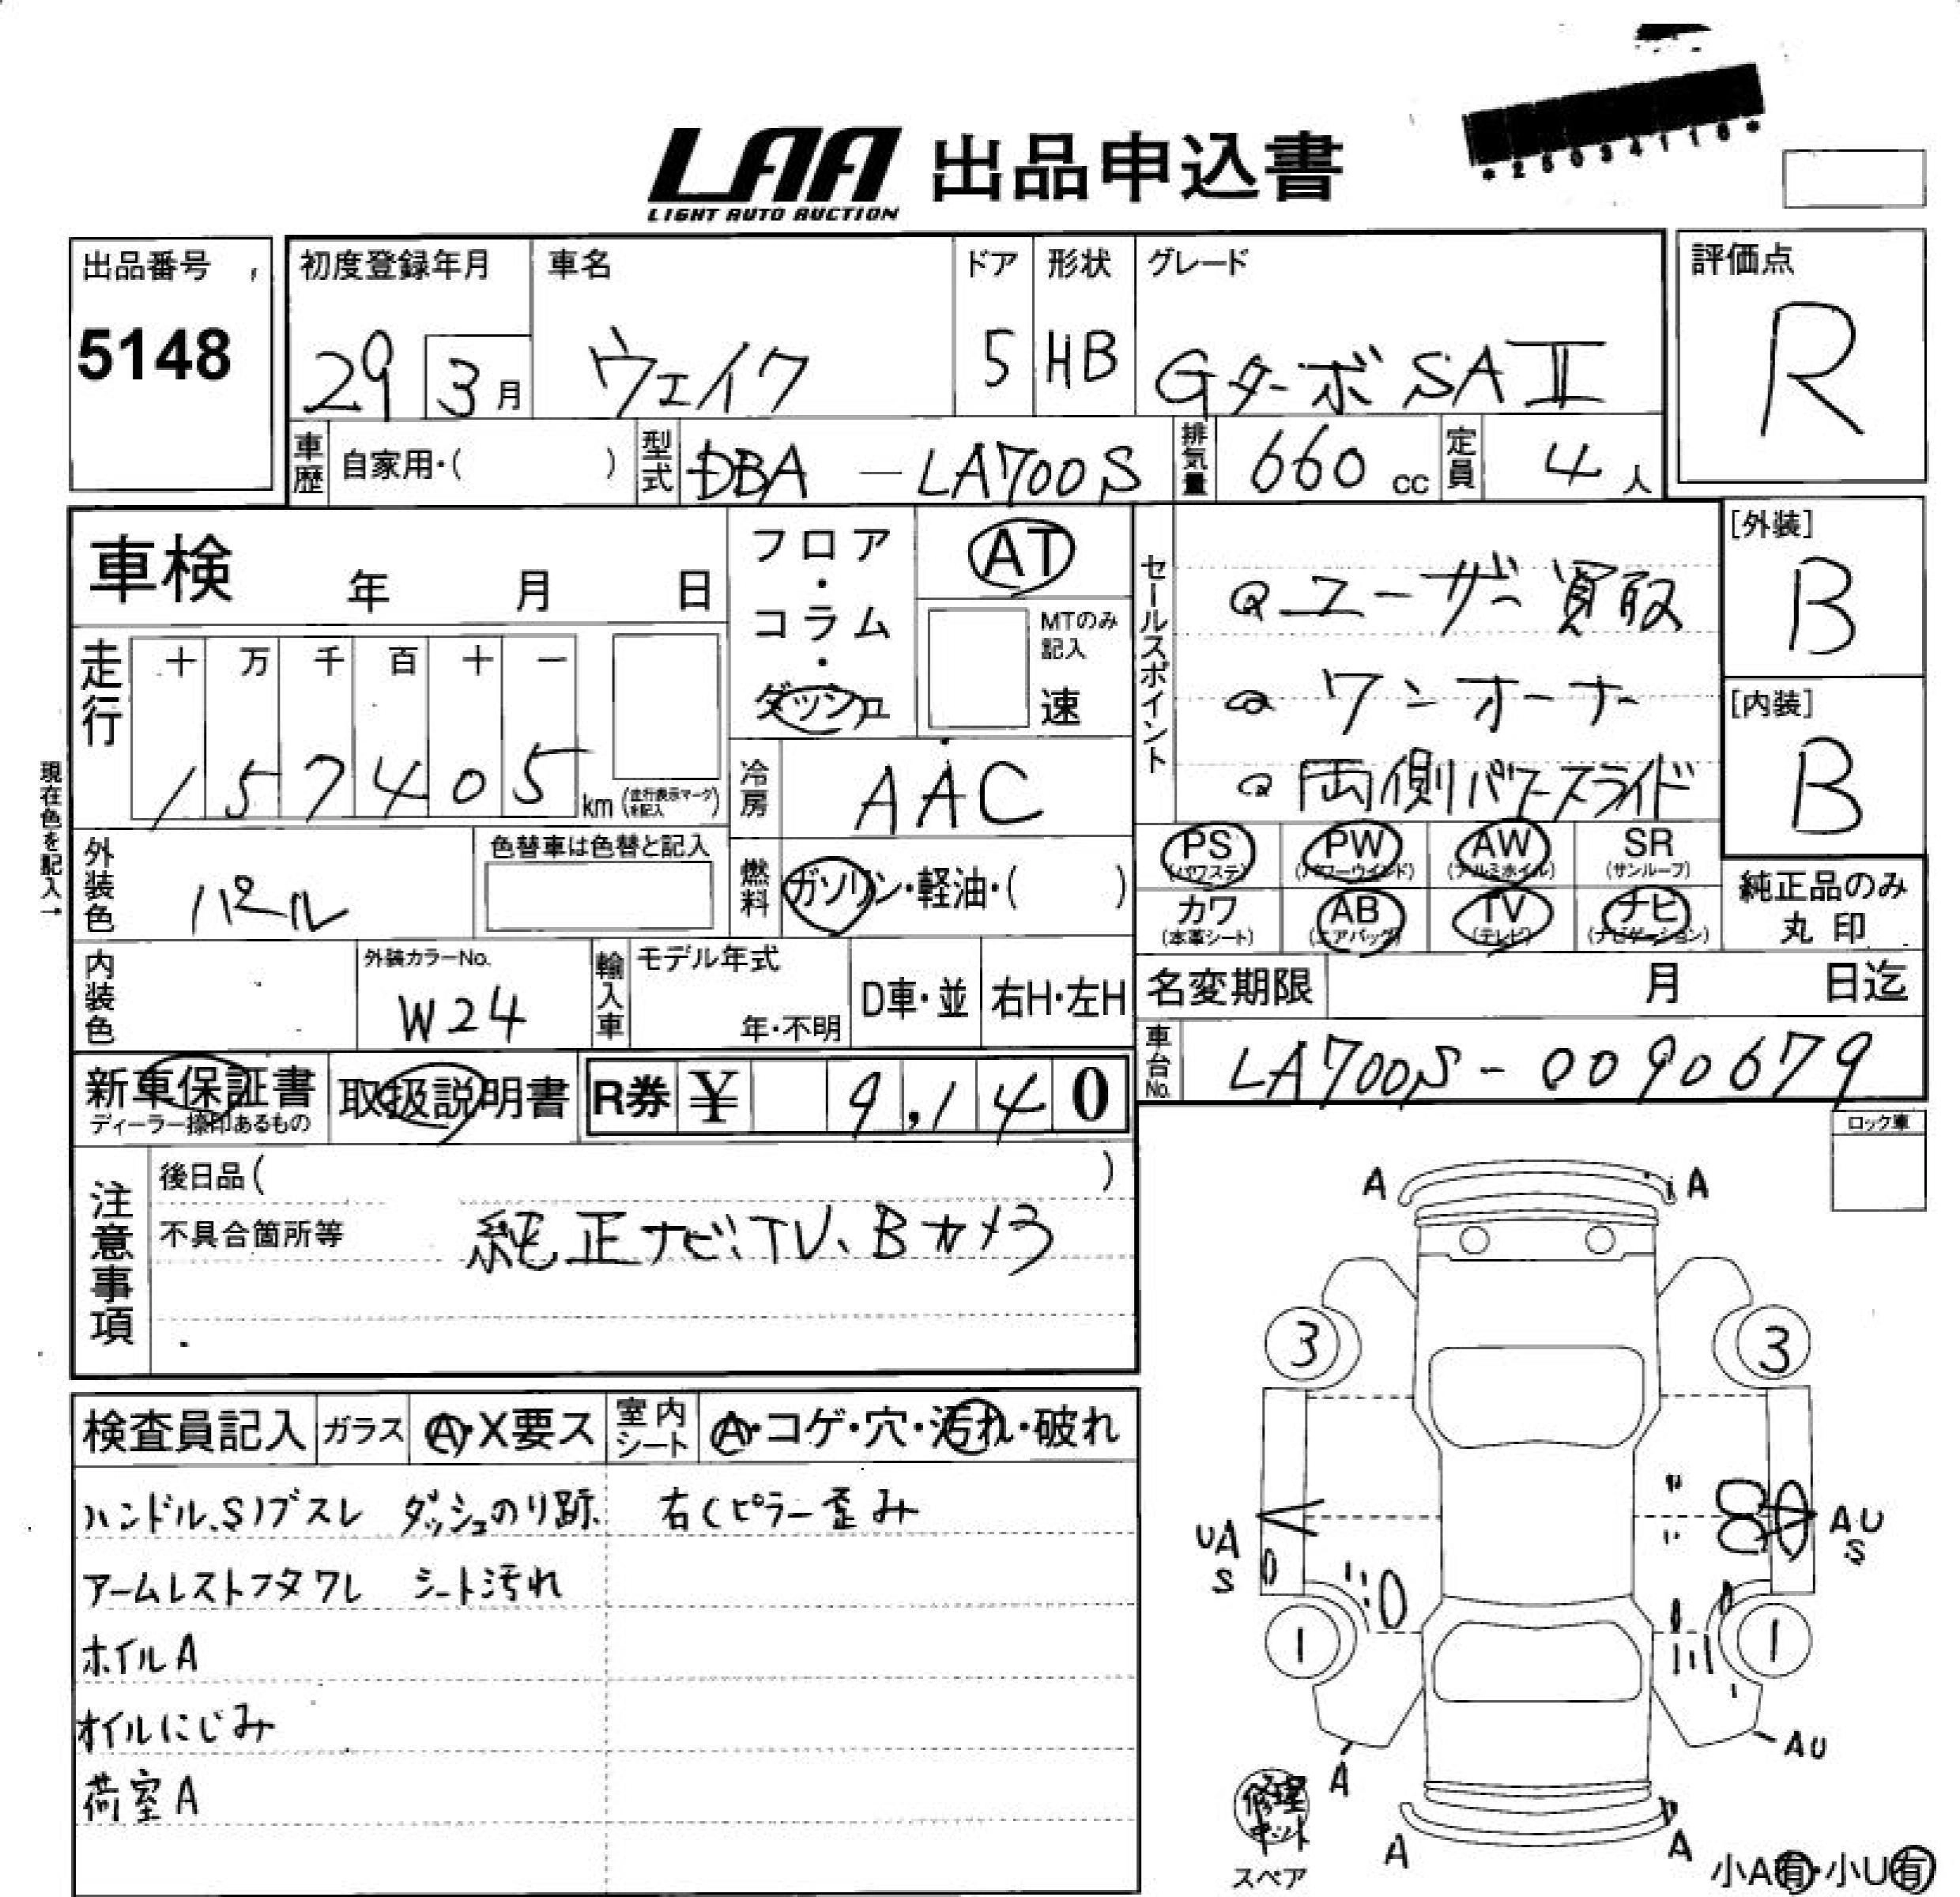 LAA 出品申込書
LIGHT AUTO AUCTION
*25034110*
出品番号 初度登録年月 車名 ドア 形状 グレード 評価点
5148 29 3月 ウェイク 5 HB Gターボ SAⅡ R
車歴 自家用・( ) 型式 DBA-LA700S 排気量 660 cc 定員 4人
車検 年 月 日
フロア・コラム・ダッシュ
AT
MTのみ記入
速
セールスポイント
ユーザー買取
ワンオーナー
両側パワースライド
[外装]
B
[内装]
B
走行 十 万 千 百 十 一
157405 km (走行表示マークを記入)
現在色を記入→
冷房 AAC
外装色 パール
色替車は色替と記入
燃料 ガソリン・軽油・( )
PS (パワステ) PW (パワーウインド) AW (アルミホイル) SR (サンルーフ)
カワ (本革シート) AB (エアバッグ) TV (テレビ) ナビ (ナビゲーション)
純正品のみ
丸印
内装色
外装カラーNo.
W24
輸入車 モデル年式
年・不明
D車・並 右H・左H
名変期限 月 日迄
車台No. LA700S-0090679
新車保証書
ディーラー捺印あるもの
取扱説明書
R券 ¥ 9,140
ロック車
注意事項
後日品( )
不具合箇所等 純正ナビ、TV、Bカメラ
検査員記入 ガラス A・X要ス 室内シート A・コゲ・穴・汚れ・破れ
ハンドル、S)ブスレ ダッシュのり跡 右Cピラー歪み
アームレストフタワレ シート汚れ
ホイルA
オイルにじみ
荷室A
A A
3 3
UA
S
AU
S
1 1
A AU
修理キット
スペア
A A
小A有・小U有